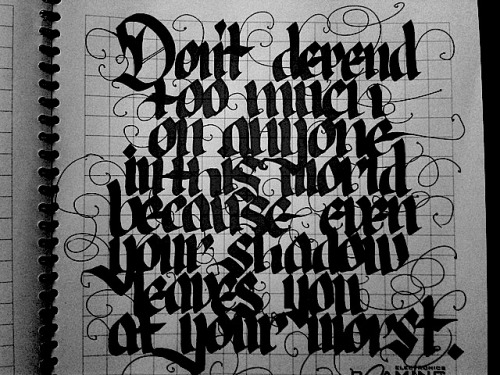 Don't depend
too much
on anyone
in this world
because even
your shadow
leaves you
at your worst.
ELECTRONICS